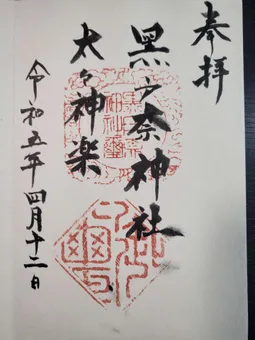 奉拝
黒戸奈神社
太々神楽
令和五年四月十二日